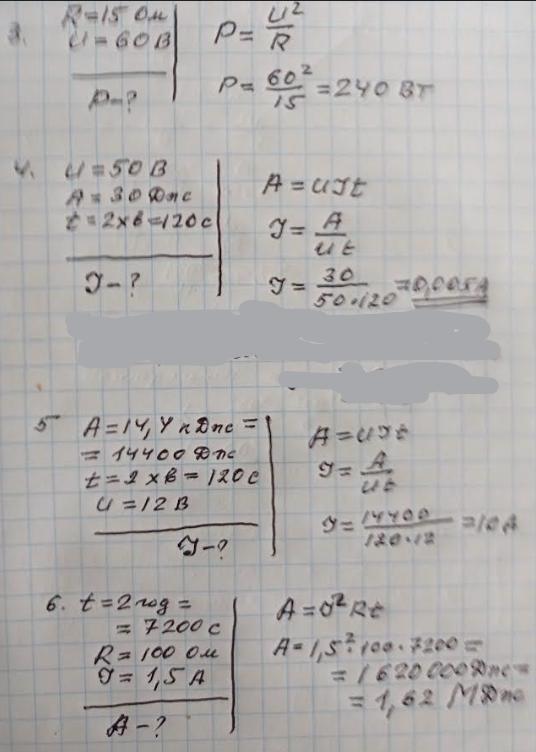 3.
R = 15 Ом
U = 60 В
P - ?
P = U²/R
P = 60²/15 = 240 Вт
4.
U = 50 В
A = 30 Дж
t = 2 хв = 120 с
I - ?
A = UIt
I = A/Ut
I = 30/50·120 = 0,005 А
5
A = 14,4 кДж =
= 14400 Дж
t = 2 хв = 120 с
U = 12 В
I - ?
A = UIt
I = A/Ut
I = 14400/120·12 = 10 А
6.
t = 2 год =
= 7200 с
R = 100 Ом
I = 1,5 А
A - ?
A = I²Rt
A = 1,5²·100·7200 =
= 1620000 Дж =
= 1,62 МДж